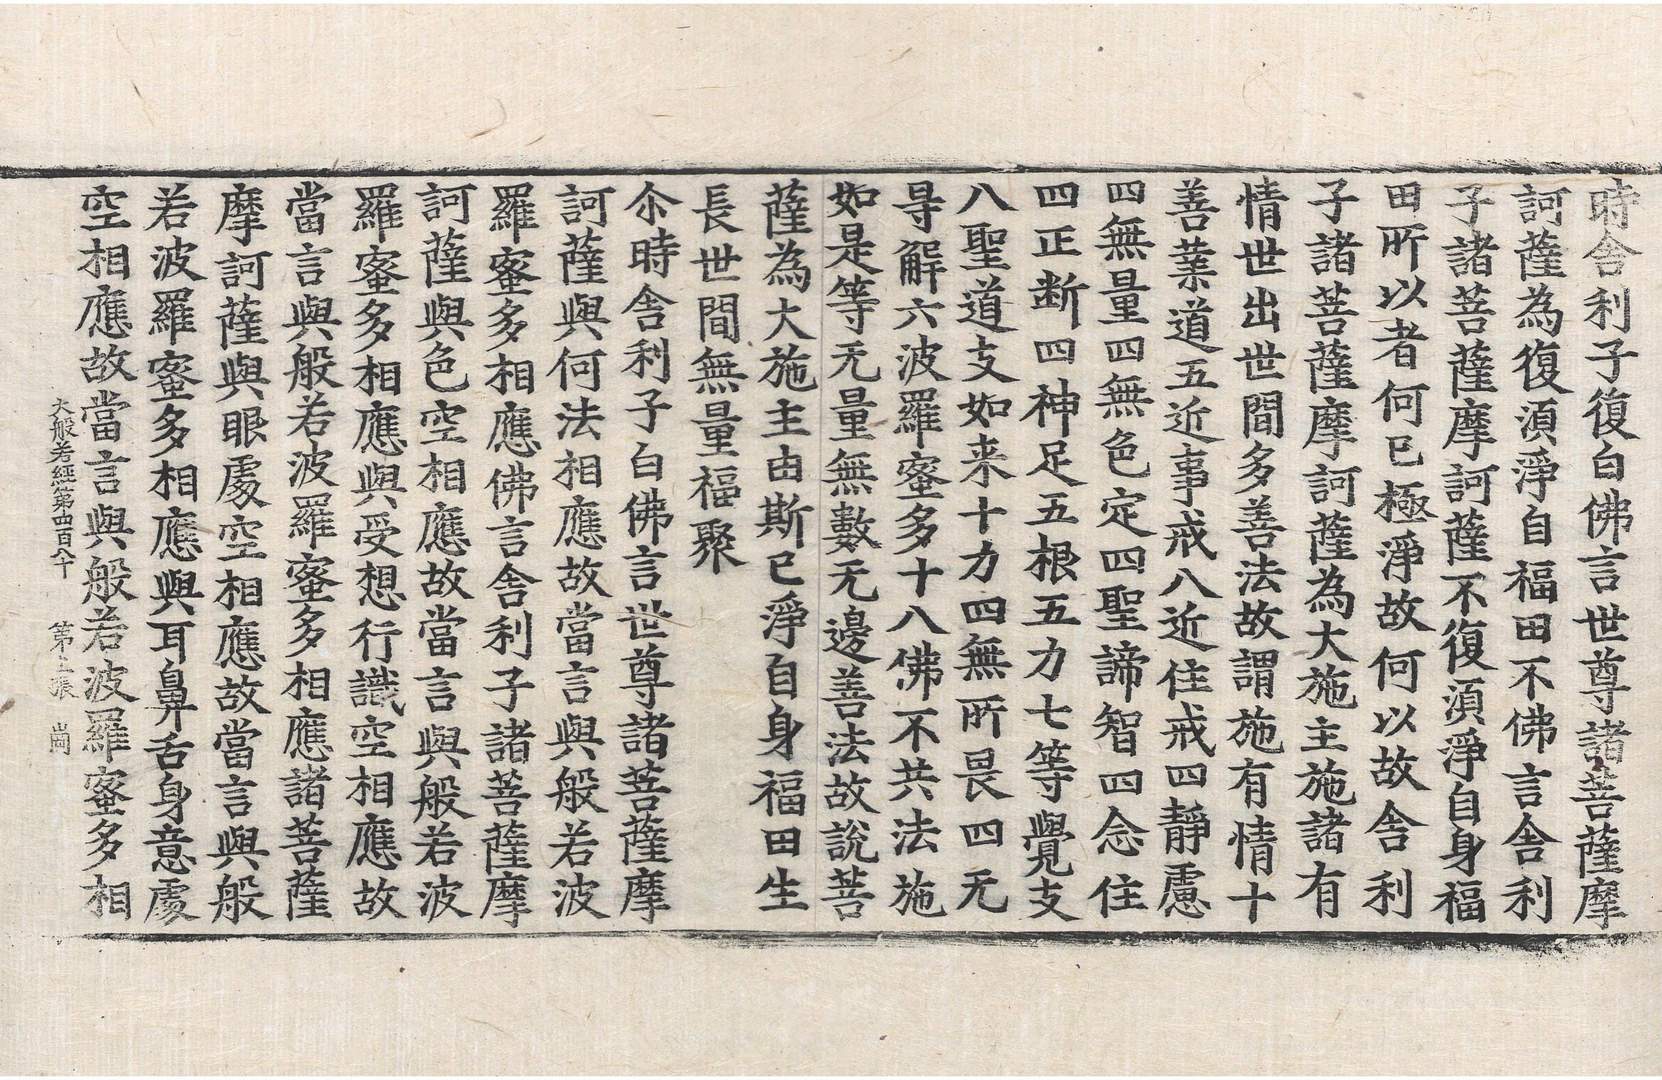 時舍利子復白佛言世尊諸菩薩摩
訶薩為復湏淨自福田不佛言舍利
子諸菩薩摩訶薩不復湏淨自身福
田所以者何已極淨故何以故舍利
子諸菩薩摩訶薩為大施主施諸有
情世出世間多善法故謂施有情十
善業道五近事戒八近住戒四靜慮
四無量四無色定四聖諦智四念住
四正断四神足五根五力七等覺支
八聖道支如来十力四無所畏四无
㝵解六波羅蜜多十八佛不共法施
如是等无量無數无邊善法故說菩
薩為大施主由斯已淨自身福田生
長世間無量福聚
尒時舍利子白佛言世尊諸菩薩摩
訶薩與何法相應故當言與般若波
羅蜜多相應佛言舍利子諸菩薩摩
訶薩與色空相應故當言與般若波
羅蜜多相應與受想行識空相應故
當言與般若波羅蜜多相應諸菩薩
摩訶薩與眼處空相應故當言與般
若波羅蜜多相應與耳鼻舌身意處
空相應故當言與般若波羅蜜多相
大般若經第四百八十 第 張 崗